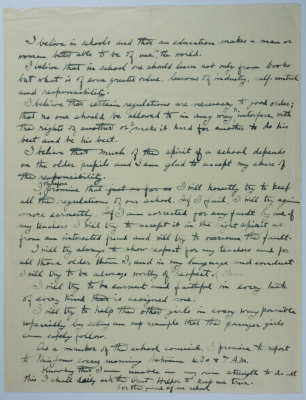 I believe in schools and that an education makes a man or
woman better able to be of use in the world.
I believe that in school one should learn not only from books
but what is of even greater value, lessons of industry, self-control
and responsibility.
I believe that certain regulations are necessary to good order;
that no one should be allowed to in any way interfere with
the rights of another or make it hard for another to do his
best and be his best.
I believe that much of the spirit of a school depends
on the older pupils and I am glad to accept my share of
the responsibility.
I promise that just as far as I will honestly try to keep
all the regulations of our school. If I fail, I will try again
more earnestly. If I am corrected for any fault by one of
my teachers I will try to accept it in the right spirit as
from an interested friend and will try to overcome the fault.
I will try always to show respect for my teachers and for
all those older than I, and in my language and conduct
I will try to be always worthy of respect.
I will try to be earnest and faithful in every task
of every kind that is assigned me.
I will try to help the other girls in every way possible
especially by setting an example that the younger girls
can safely follow.
As a member of the school council, I promise to report
to every morning between 6:30 & 7 A.M.
Knowing that I am unable in my own strength to do all
this I shall daily ask the Great Helper to keep me true.
For the good of our school